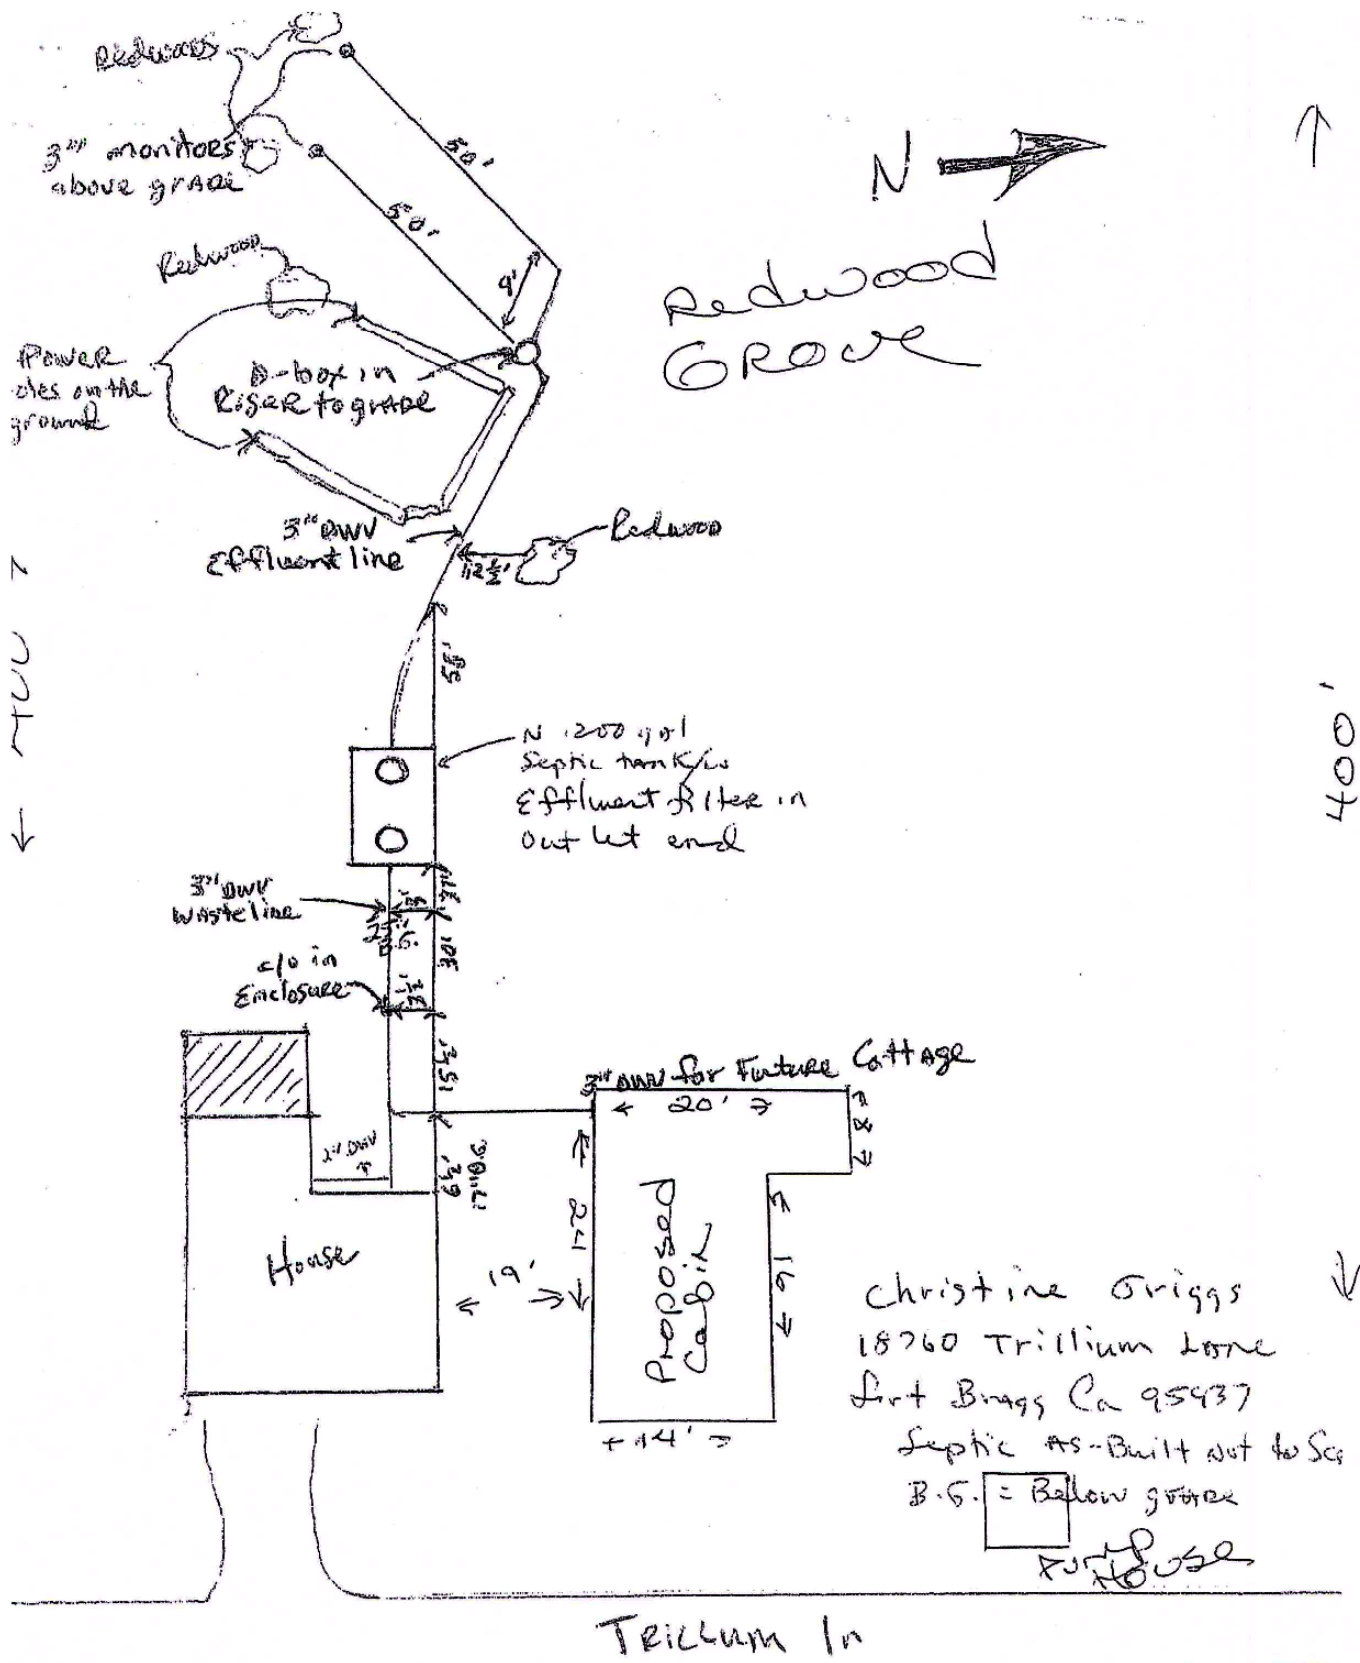 Redwoods
50'
3"" monitors
above grade
50'
N
Redwood
Grove
Redwood
4'
Power
oles on the
ground
D-box in
Riser to grade
3"" DWV
Effluent line
Redwood
12½'
58'
400'
N 1200 gal
Septic tank/w
Effluent filter in
Outlet end
3"" DWV
Waste line
B.G.
30'
c/o in
Enclosure
3" DWV for Future Cottage
20'
8
2" DWV
24
Proposed
Cabin
16
House
19'
14'
Christine Griggs
18760 Trillium Lane
Fort Bragg Ca 95437
Septic As-Built Not to Sca
B.G. = Below grade
Pump
House
Trillum ln